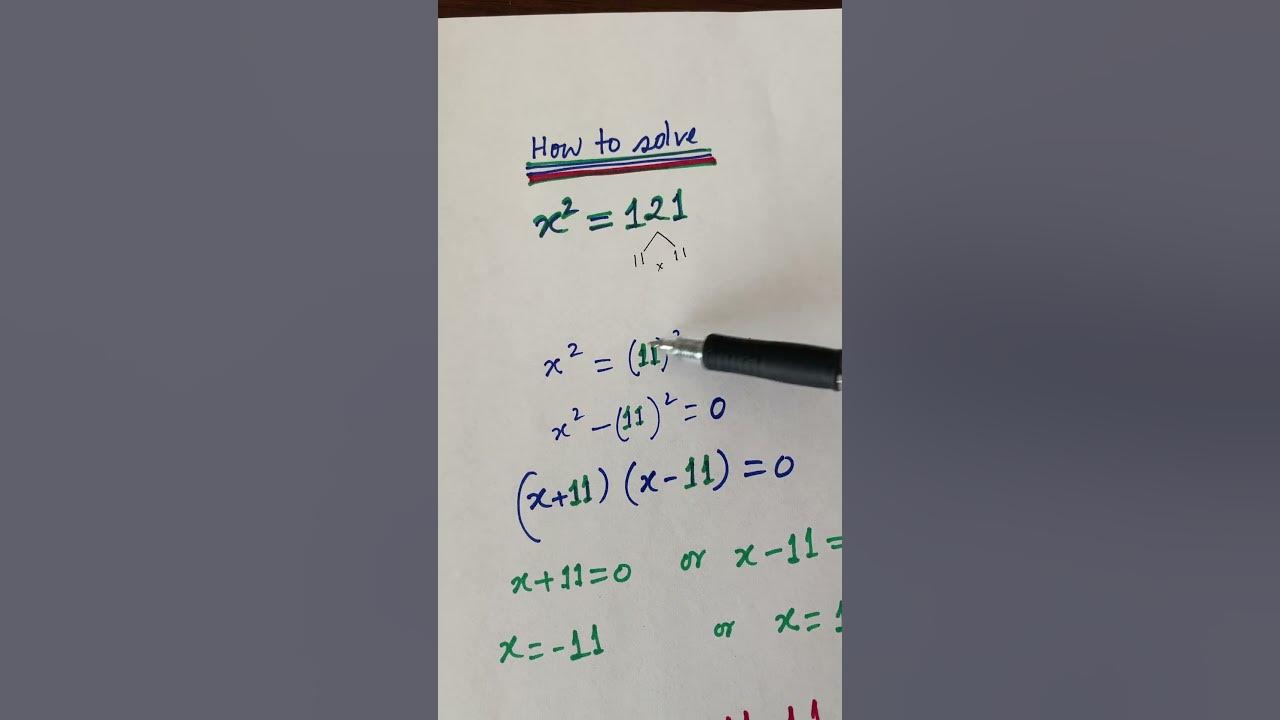 How to solve
x² = 121
11 x 11
x² = (11)²
x² - (11)² = 0
(x+11) (x-11) = 0
x+11=0 or x-11=
x=-11 or x=